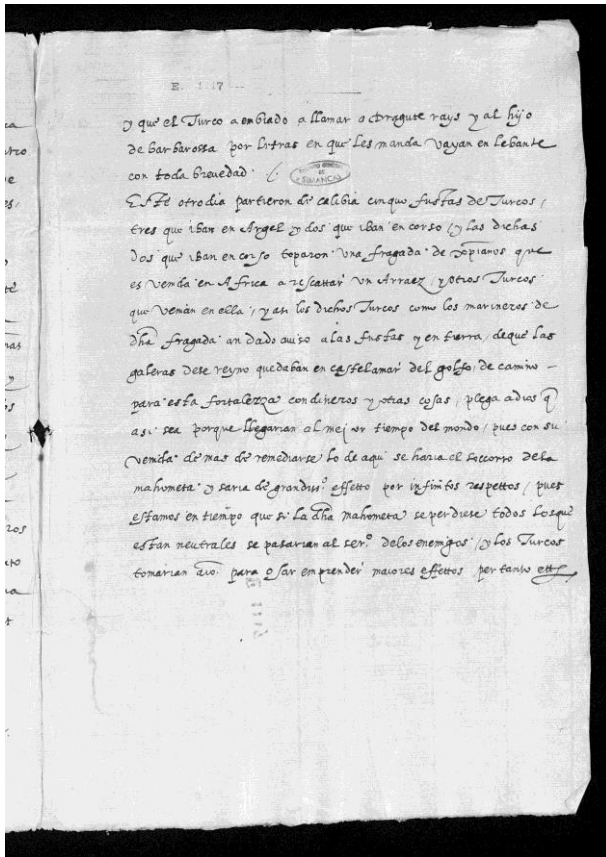 E. 1.17
y que el Turco a embiado a llamar a dragute rays y al hijo
de barbarossa por letras en que les manda vayan en lebante
con toda breuedad. /.
ARCHIVO GENERAL DE SIMANCAS
Este otro dia partieron de calibia cinquo fustas de Turcos,
tres que iban en Argel y dos que iban en corso / y las dichas
dos que iban en corso toparon una fragada de xpianos que
es venida en Africa a rescattar un Arraez, y otros Turcos
que venian en ella, y asi los dichos Turcos como los marineros de
dha fragada an dado auiso a las fustas y en tierra, de que las
galeras dese reyno quedaban en castelamar del golfo, de camino -
para esta fortalezza con dineros y otras cosas, plega a dios q
asi sea porque llegarian al mejor tiempo del mondo, pues con su
venida de mas de remediarse lo de aqui se haria el soccorro de la
mahometa y saria de grandiss.o effetto por infinitos respettos, pues
estamos en tiempo que si la dha mahometa se perdiese todos los que
estan neutrales se pasarian al ser.o de los enemigos, / y los Turcos
tomarian para osar emprender maiores effettos per tanto ett